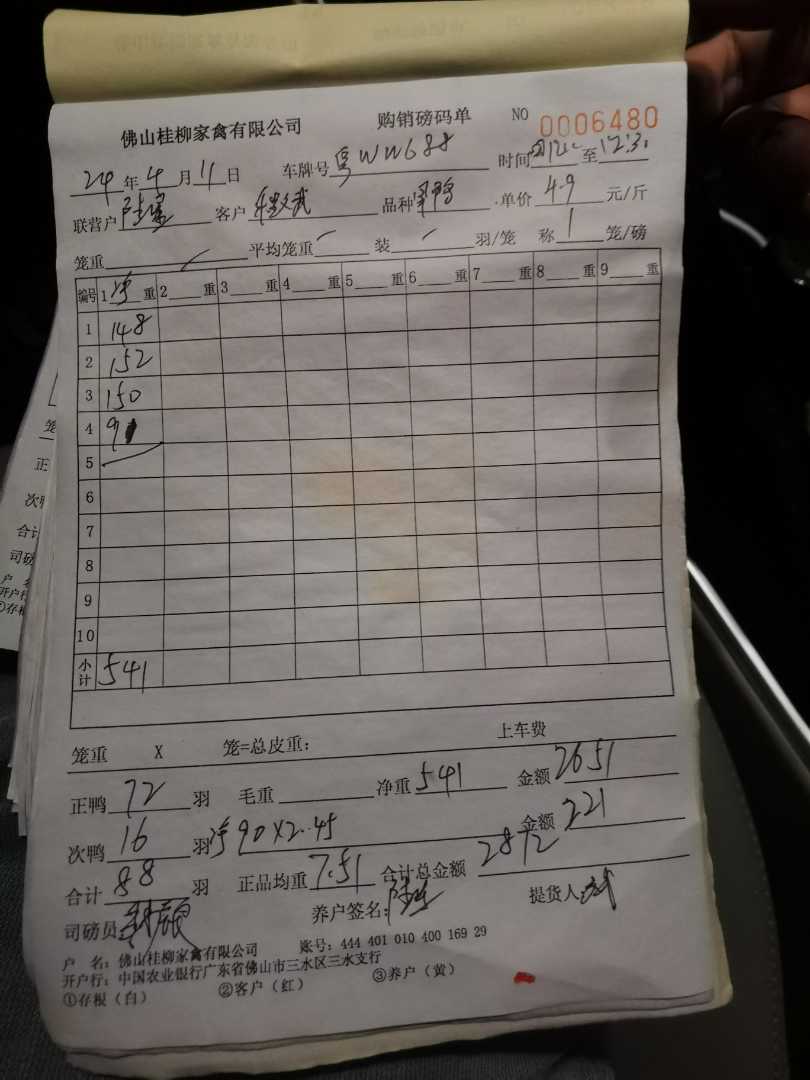 佛山桂柳家禽有限公司 购销磅码单 NO 0006480
24年4月11日 车牌号粤WW688 时间 至12:30
联营户 客户 品种 单价4.9元/斤
笼重 平均笼重 装 羽/笼 称1笼/磅
编号 1净重 2 重 3 重 4 重 5 重 6 重 7 重 8 重 9 重
1 148
2 152
3 150
4 91
5
6
7
8
9
10
小计 541
笼重 X 笼=总皮重: 上车费
正鸭72羽 毛重 净重541 金额2651
次鸭16羽净90X2.45 金额221
合计88羽 正品均重7.51 合计总金额2872
司磅员 养户签名: 提货人:
户 名: 佛山桂柳家禽有限公司 账号: 444 401 010 400 169 29
开户行: 中国农业银行广东省佛山市三水区三水支行
①存根(白) ②客户(红) ③养户(黄)
笼
正
次
合计
司磅
户
开户行
①存根